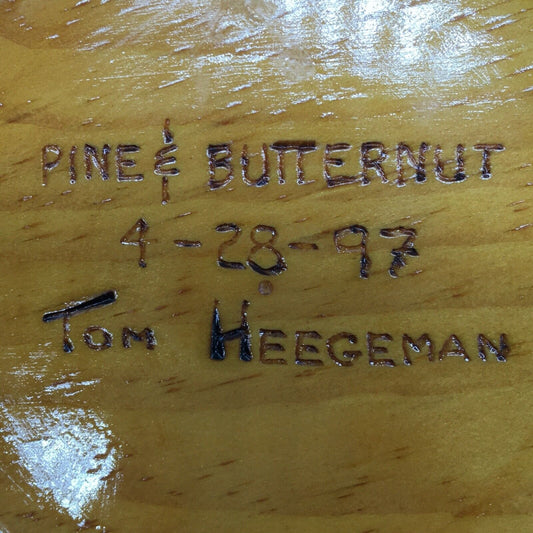 PINE & BUTTERNUT
4-28-97
TOM HEEGEMAN